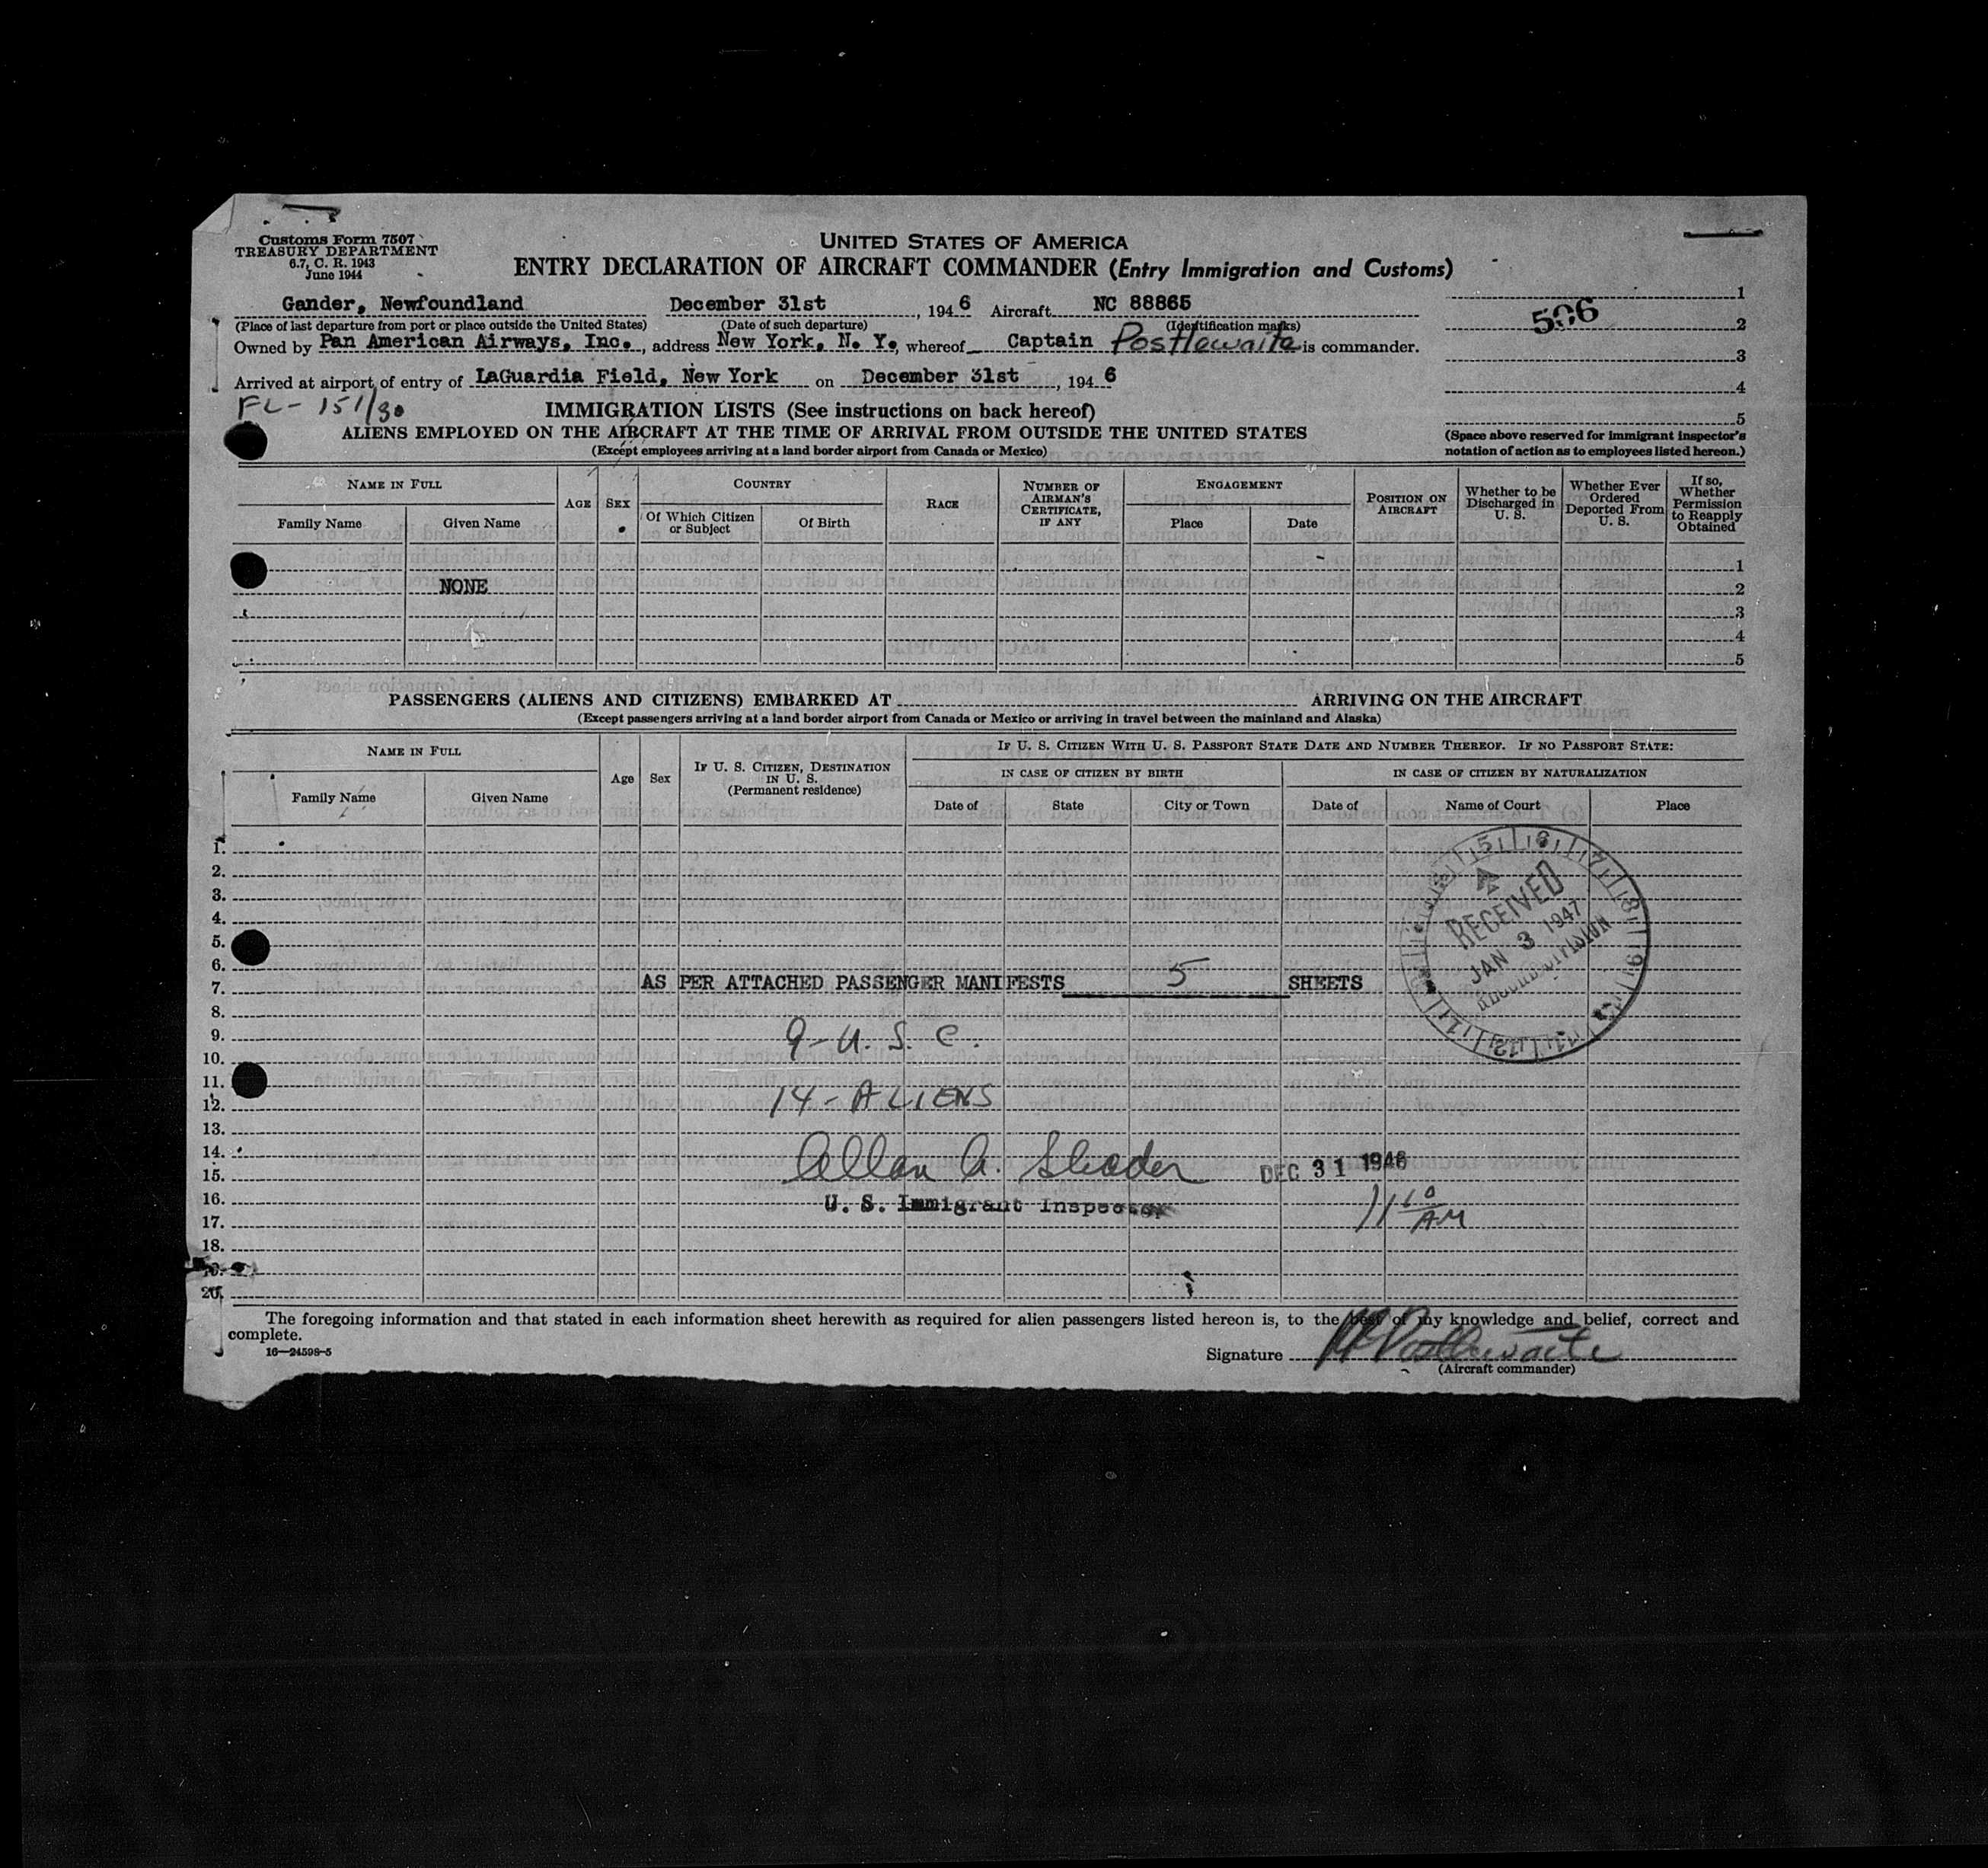 Customs Form 7507
TREASURY DEPARTMENT
6.7, C. R. 1943
June 1944
UNITED STATES OF AMERICA
ENTRY DECLARATION OF AIRCRAFT COMMANDER (Entry Immigration and Customs)
Gander, Newfoundland December 31st, 1946 Aircraft NC 88865
(Place of last departure from port or place outside the United States) (Date of such departure) (Identification marks)
Owned by Pan American Airways, Inc., address New York, N. Y., whereof Captain Postlewaite is commander.
Arrived at airport of entry of LaGuardia Field, New York on December 31st, 1946
FL-151/30
1
506
2
3
4
5
(Space above reserved for immigrant inspector's
notation of action as to employees listed hereon.)
IMMIGRATION LISTS (See instructions on back hereof)
ALIENS EMPLOYED ON THE AIRCRAFT AT THE TIME OF ARRIVAL FROM OUTSIDE THE UNITED STATES
(Except employees arriving at a land border airport from Canada or Mexico)
NAME IN FULL
Family Name Given Name
AGE
SEX
COUNTRY
Of Which Citizen or Subject
Of Birth
RACE
NUMBER OF AIRMAN'S CERTIFICATE, IF ANY
ENGAGEMENT
Place Date
POSITION ON AIRCRAFT
Whether to be Discharged in U. S.
Whether Ever Ordered Deported From U. S.
If so, Whether Permission to Reapply Obtained
1
NONE 2
3
4
5
PASSENGERS (ALIENS AND CITIZENS) EMBARKED AT ARRIVING ON THE AIRCRAFT
(Except passengers arriving at a land border airport from Canada or Mexico or arriving in travel between the mainland and Alaska)
NAME IN FULL
Family Name Given Name
Age
Sex
IF U. S. CITIZEN, DESTINATION IN U. S.
(Permanent residence)
IF U. S. CITIZEN WITH U. S. PASSPORT STATE DATE AND NUMBER THEREOF. IF NO PASSPORT STATE:
IN CASE OF CITIZEN BY BIRTH IN CASE OF CITIZEN BY NATURALIZATION
Date of State City or Town Date of Name of Court Place
1.
2.
3.
4.
5.
6.
7. AS PER ATTACHED PASSENGER MANIFESTS 5 SHEETS
8.
9. 9-U. S. C.
10.
11.
12. 14-ALIENS
13.
14.
15. Allan A. Shader DEC 31 1946
16. U. S. Immigrant Inspector
17. 11 10 AM
18.
19.
20.
RECEIVED
JAN 3 1947
RECORD DIVISION
The foregoing information and that stated in each information sheet herewith as required for alien passengers listed hereon is, to the best of my knowledge and belief, correct and
complete.
16—24598-5
Signature Postlewaite
(Aircraft commander)